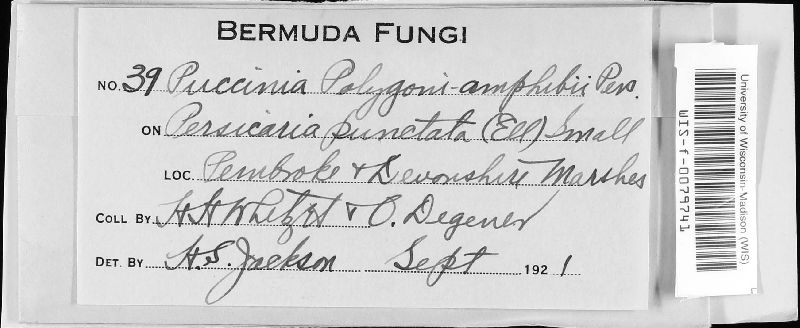 BERMUDA FUNGI
NO. 39 Puccinia Polygoni-amphibii Pers.
ON Persicaria punctata (Ell) Small
LOC. Pembroke & Devonshire Marshes
COLL BY. H H Whetzel & O. Degener
DET. BY H.S. Jackson Sept 1921
University of Wisconsin-Madison (WIS)
WIS-f-0079741